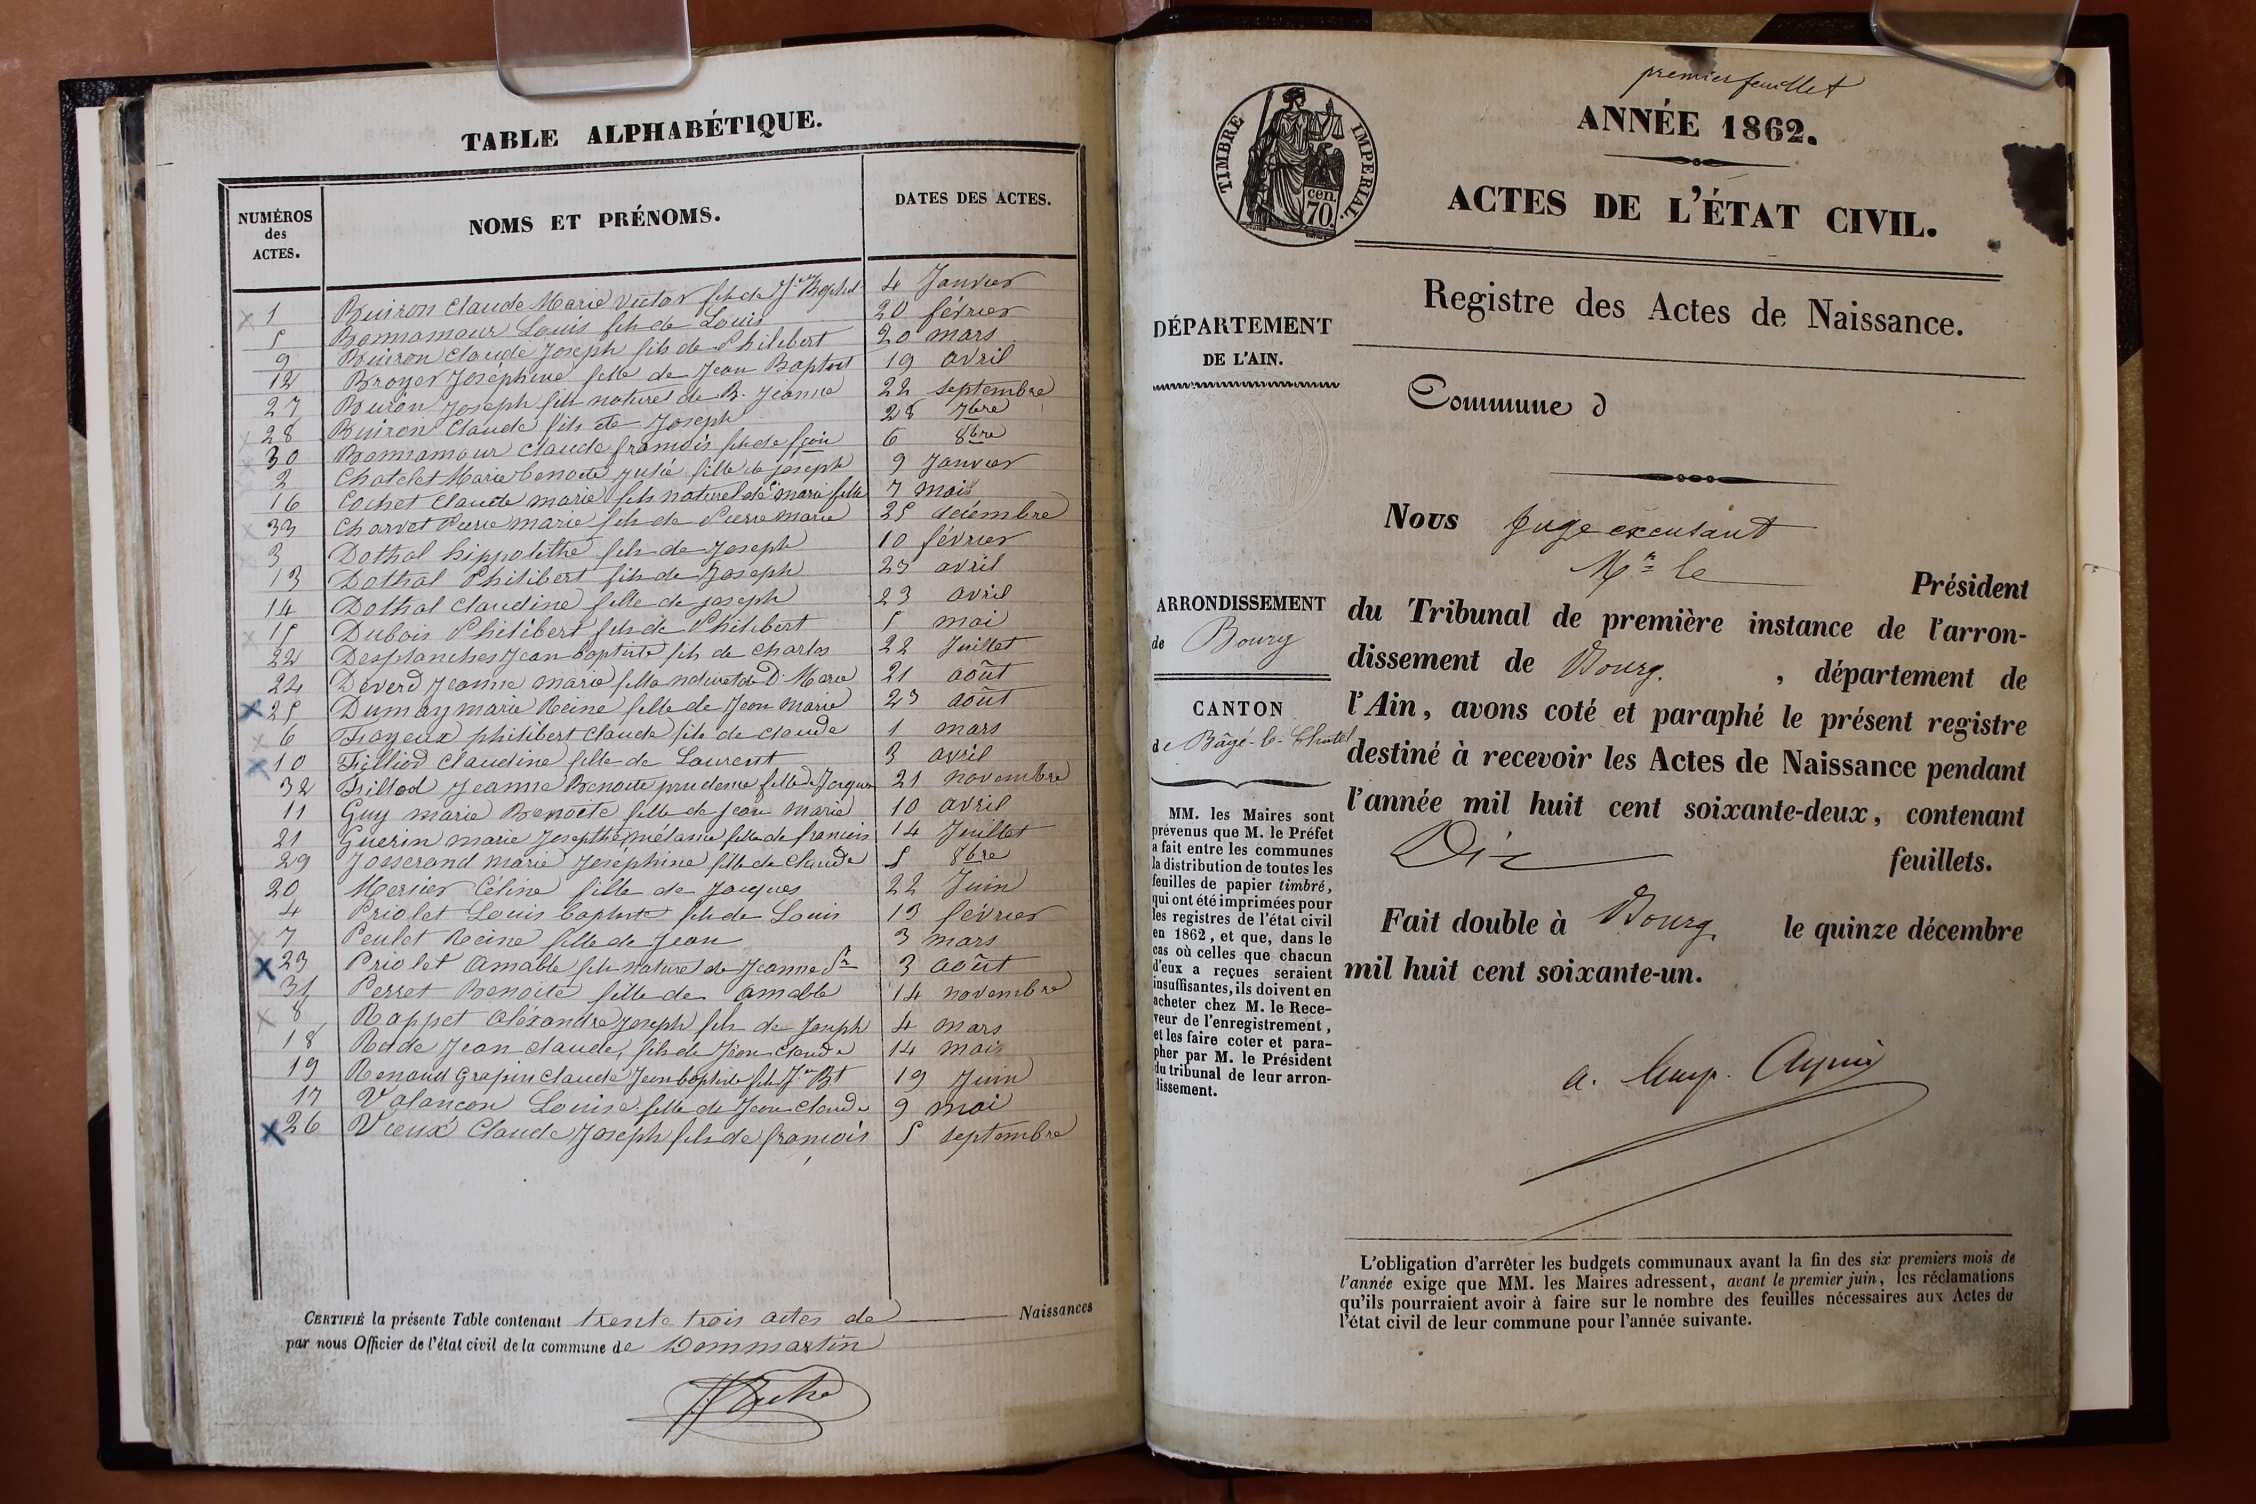 TABLE ALPHABÉTIQUE.
NUMÉROS des ACTES.
NOMS ET PRÉNOMS.
DATES DES ACTES.
1 Buiron Claude Marie Victor fils de Jn Baptist 4 Janvier
5 Bonnamour Louis fils de Louis 20 février
9 Buiron Claude Joseph fils de Philibert 20 mars
12 Broyer Joséphine fille de Jean Baptist 19 avril
27 Buiron Joseph fils naturel de B. Jeanne 22 septembre
28 Buiron Claude fils de Joseph 28 7bre
30 Bonnamour Claude francois fils de fçois 6 8bre
2 Chatelet Marie benoite Julie fille de joseph 9 Janvier
16 Cochet Claude marie fils naturel de marie fille 7 mais
33 Charvet Pierre marie fils de Pierre marie 25 décembre
3 Dothal hippolithe fils de Joseph 10 février
13 Dothal Philibert fils de Joseph 23 avril
14 Dothal Claudine fille de joseph 23 avril
15 Dubois Philibert fils de Philibert 5 mai
22 Desplanches Jean baptiste fils de Charles 22 Juillet
24 Deverd Jeanne marie fille naturel de D. Marie 21 août
25 Dumay marie Reine fille de Jean Marie 23 août
6 Fayeux philibert Claude fils de claude 1 mars
10 Filliod Claudine fille de Laurent 3 avril
32 Filliod Jeanne Benoite prudence fille de Jacques 21 novembre
11 Guy marie Benoite fille de jean marie 10 avril
21 Guerin marie Josepthe mélanie fille de francois 14 Juillet
29 Josserand marie Joséphine fille de Claude 5 8bre
20 Mercier Céline fille de Jacques 22 Juin
4 Priolet Louis baptiste fils de Louis 13 février
7 Peulet Reine fille de Jean 3 mars
23 Priolet Amable fils naturel de Jeanne Pr 3 août
31 Perret Benoite fille de amable 14 novembre
8 Rappet Aléxandre joseph fils de Joseph 4 mars
18 Rude Jean claude, fils de Jean claude 14 mais
19 Renaud Grapin Claude Jean baptiste fils Jn Bt 19 Juin
17 Valancon Louise fille de Jean claude 9 mai
26 Vieux Claude Joseph fils de francois 5 septembre
CERTIFIÉ la présente Table contenant trente trois actes de Naissances
par nous Officier de l'état civil de la commune de Dommartin
premier feuillet
ANNÉE 1862.
TIMBRE IMPÉRIAL.
cen. 70.
ACTES DE L'ÉTAT CIVIL.
Registre des Actes de Naissance.
DÉPARTEMENT
DE L'AIN.
Commune d
ARRONDISSEMENT
de Bourg
CANTON
de Bâgé-le-Chatel
MM. les Maires sont
prévenus que M. le Préfet
a fait entre les communes
la distribution de toutes les
feuilles de papier timbré,
qui ont été imprimées pour
les registres de l'état civil
en 1862, et que, dans le
cas où celles que chacun
d'eux a reçues seraient
insuffisantes, ils doivent en
acheter chez M. le Rece-
veur de l'enregistrement,
et les faire coter et para-
pher par M. le Président
du tribunal de leur arron-
dissement.
Nous Juge excusant
Mr le Président
du Tribunal de première instance de l'arron-
dissement de Bourg. , département de
l'Ain, avons coté et paraphé le présent registre
destiné à recevoir les Actes de Naissance pendant
l'année mil huit cent soixante-deux, contenant
Dix feuillets.
Fait double à Bourg, le quinze décembre
mil huit cent soixante-un.
L'obligation d'arrêter les budgets communaux avant la fin des six premiers mois de
l'année exige que MM. les Maires adressent, avant le premier juin, les réclamations
qu'ils pourraient avoir à faire sur le nombre des feuilles nécessaires aux Actes de
l'état civil de leur commune pour l'année suivante.